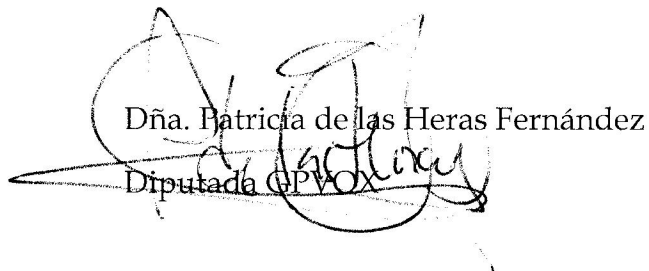 Dña. Patricia de las Heras Fernández
Diputada GPVOX